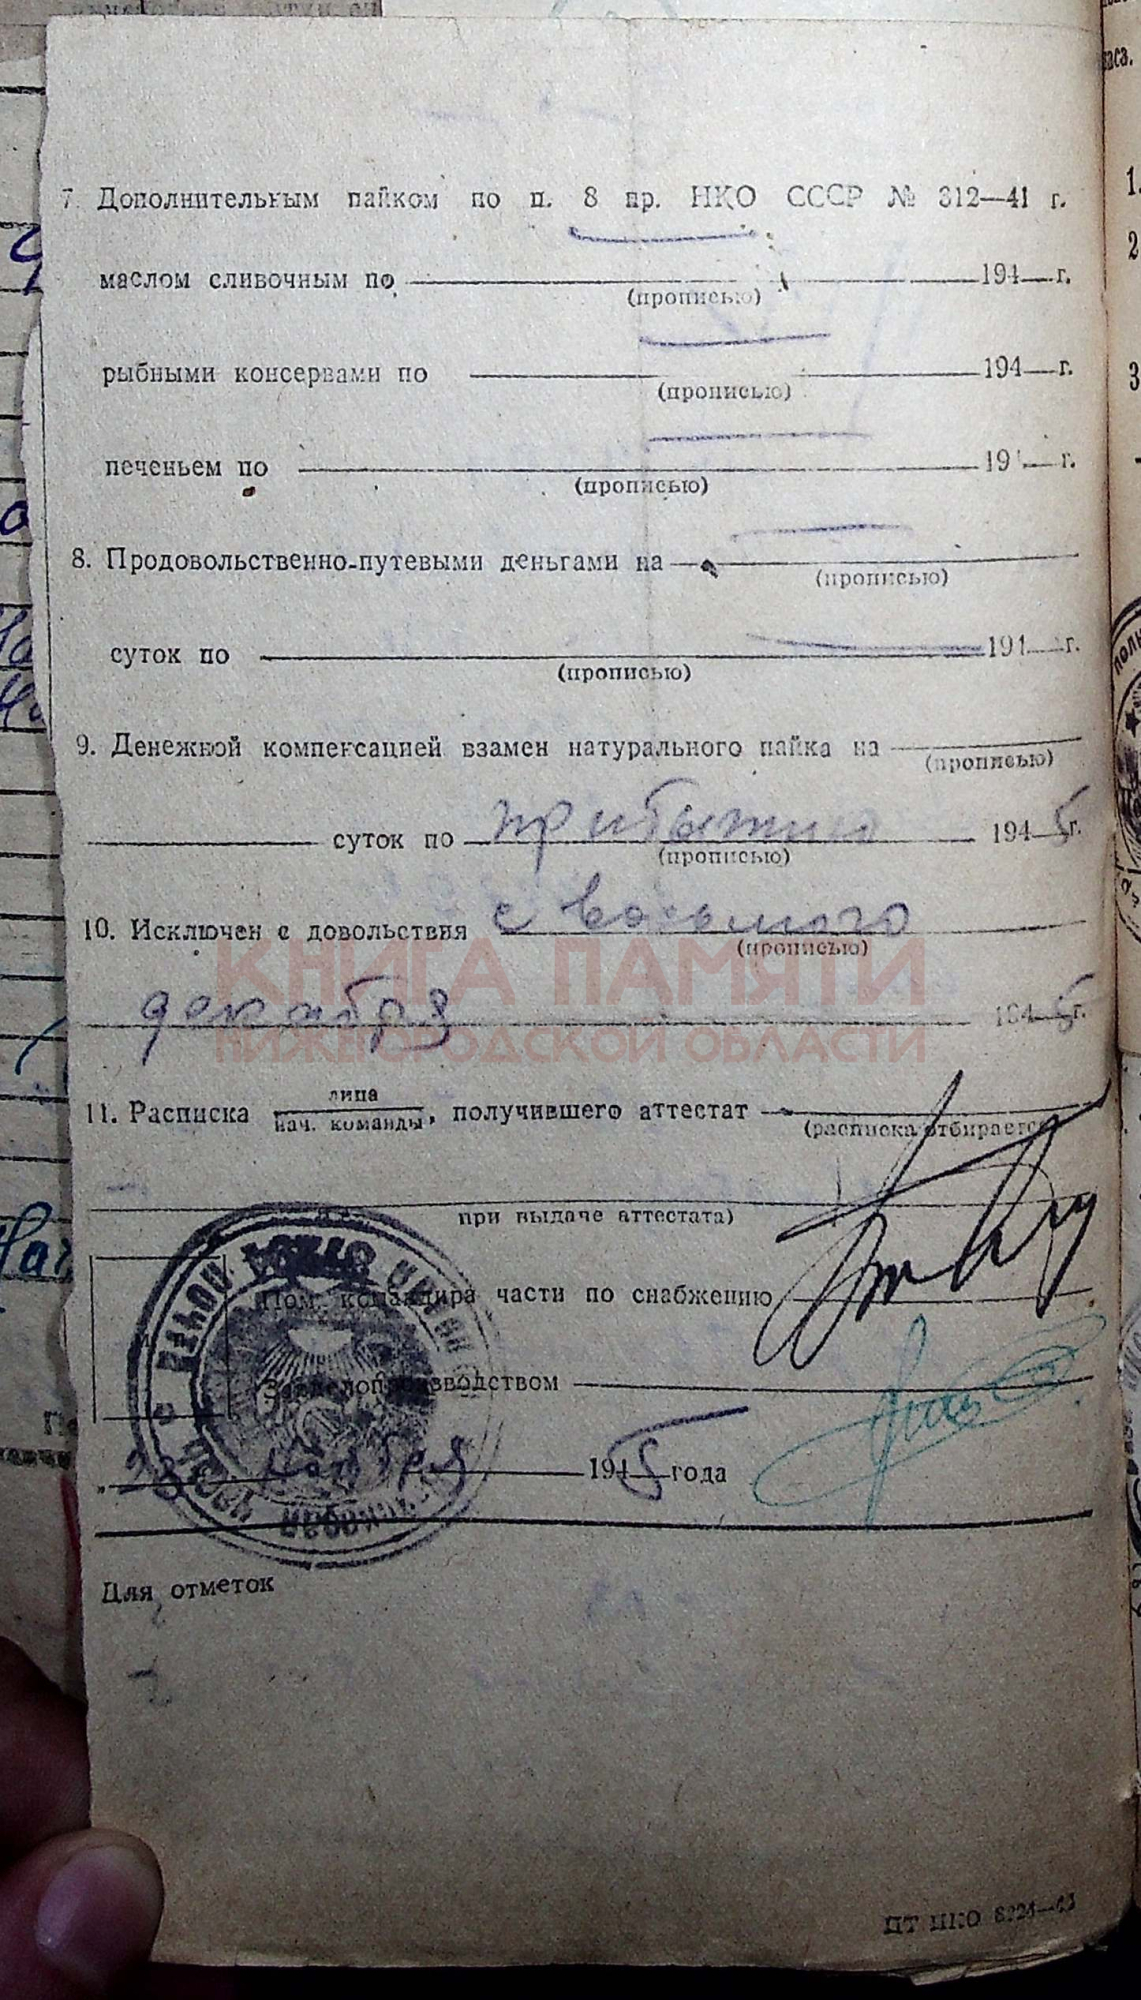 7. Дополнительным пайком по п. 8 пр. НКО СССР № 312—41 г.
маслом сливочным по 194 г.
(прописью)
рыбными консервами по 194 г.
(прописью)
печеньем по 19 г.
(прописью)
8. Продовольственно-путевыми деньгами на
(прописью)
суток по 194 г.
(прописью)
9. Денежной компенсацией взамен натурального пайка на
(прописью)
суток по прибытию 1945 г.
(прописью)
10. Исключен с довольствия с восьмого
(прописью)
КНИГА ПАМЯТИ
декабря 1945 г.
НИЖЕГОРОДСКОЙ ОБЛАСТИ
11. Расписка лица
нач. команды, получившего аттестат
(расписка отбирается
при выдаче аттестата)
Пом. командира части по снабжению
Завделопроизводством
„23 ноября 1945 года
Для отметок